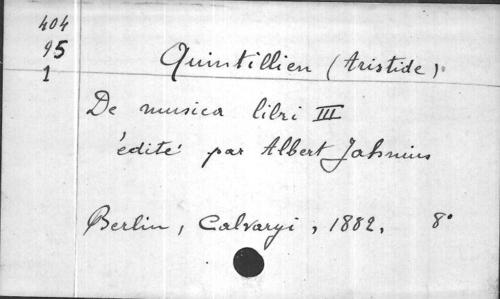 404
95
1
Quintillien (Aristide)
De musica libri III
édité par Albert Jahnius
Berlin, Calvaryi, 1882, 8°